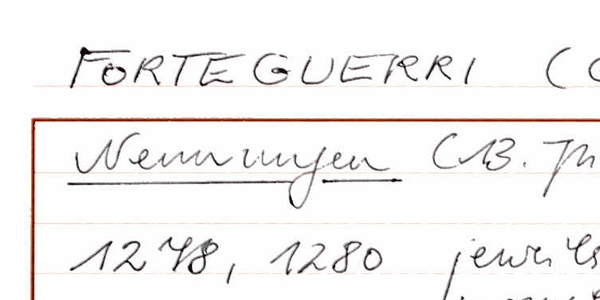 FORTEGUERRI (
Nennungen (B. Th
1278, 1280 jeweils